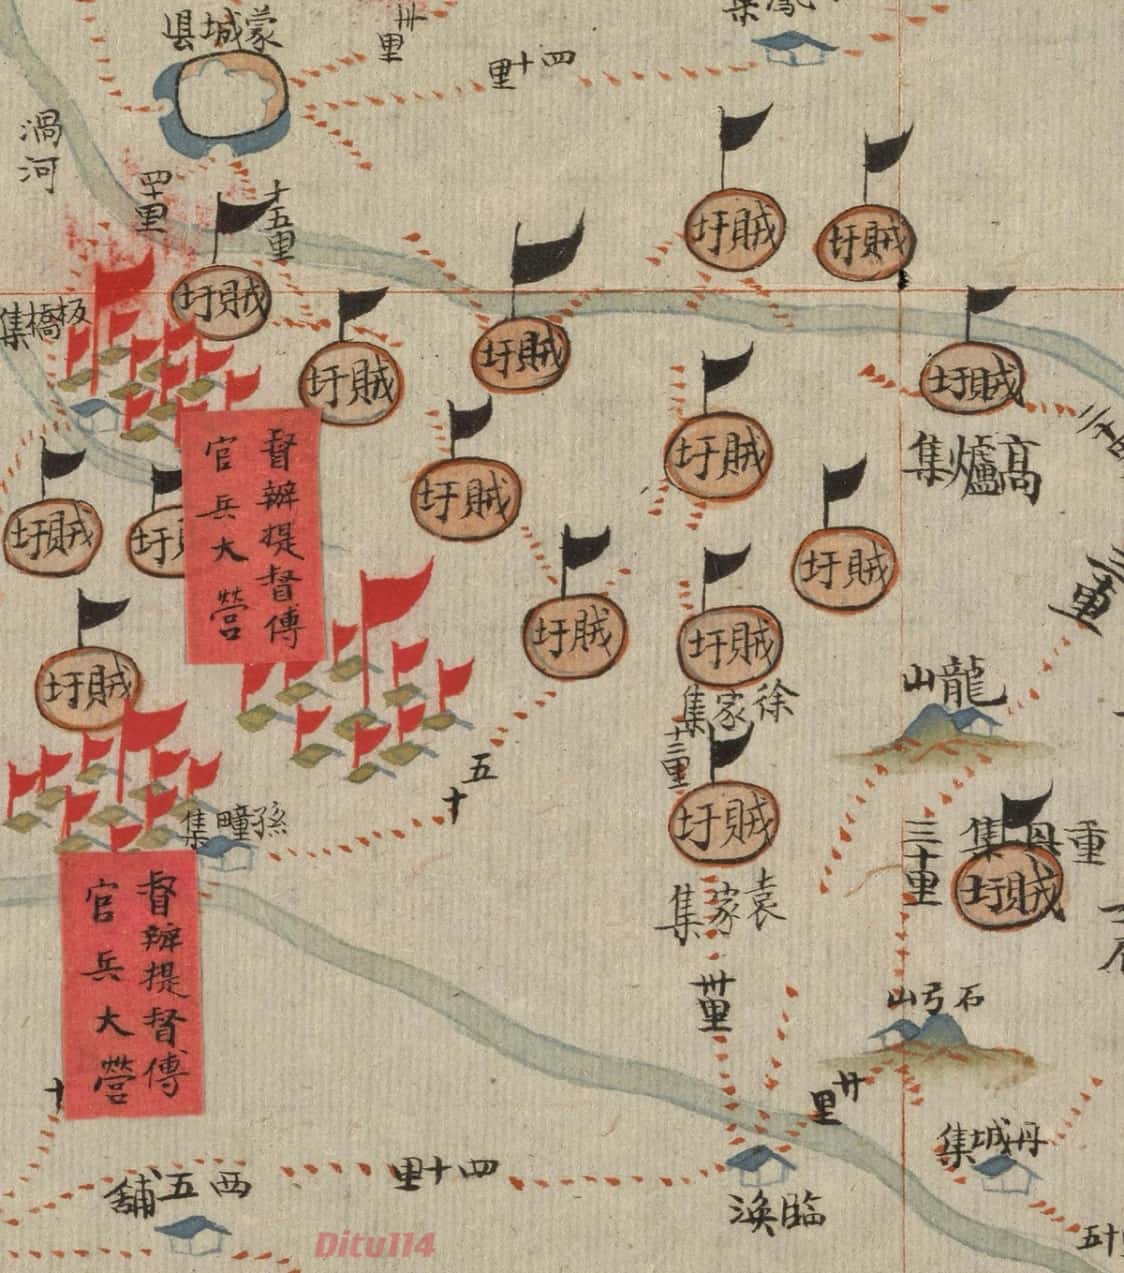 蒙城县
卅里
四十里
渦河
四里
十五里
賊圩
賊圩
賊圩
賊圩
賊圩
賊圩
板橋集
賊圩
賊圩
賊圩
高爐集
賊圩
賊圩
賊圩
督辦提督傅
官兵大營
賊圩
賊圩
賊圩
徐家集
十二里
賊圩
龍山
五十
孫疃集
賊圩
督辦提督傅
官兵大營
袁家集
卅里
三十里
重丹集
賊圩
石弓山
廿里
丹城集
四十里
西五舖
臨渙
五十
Ditu114